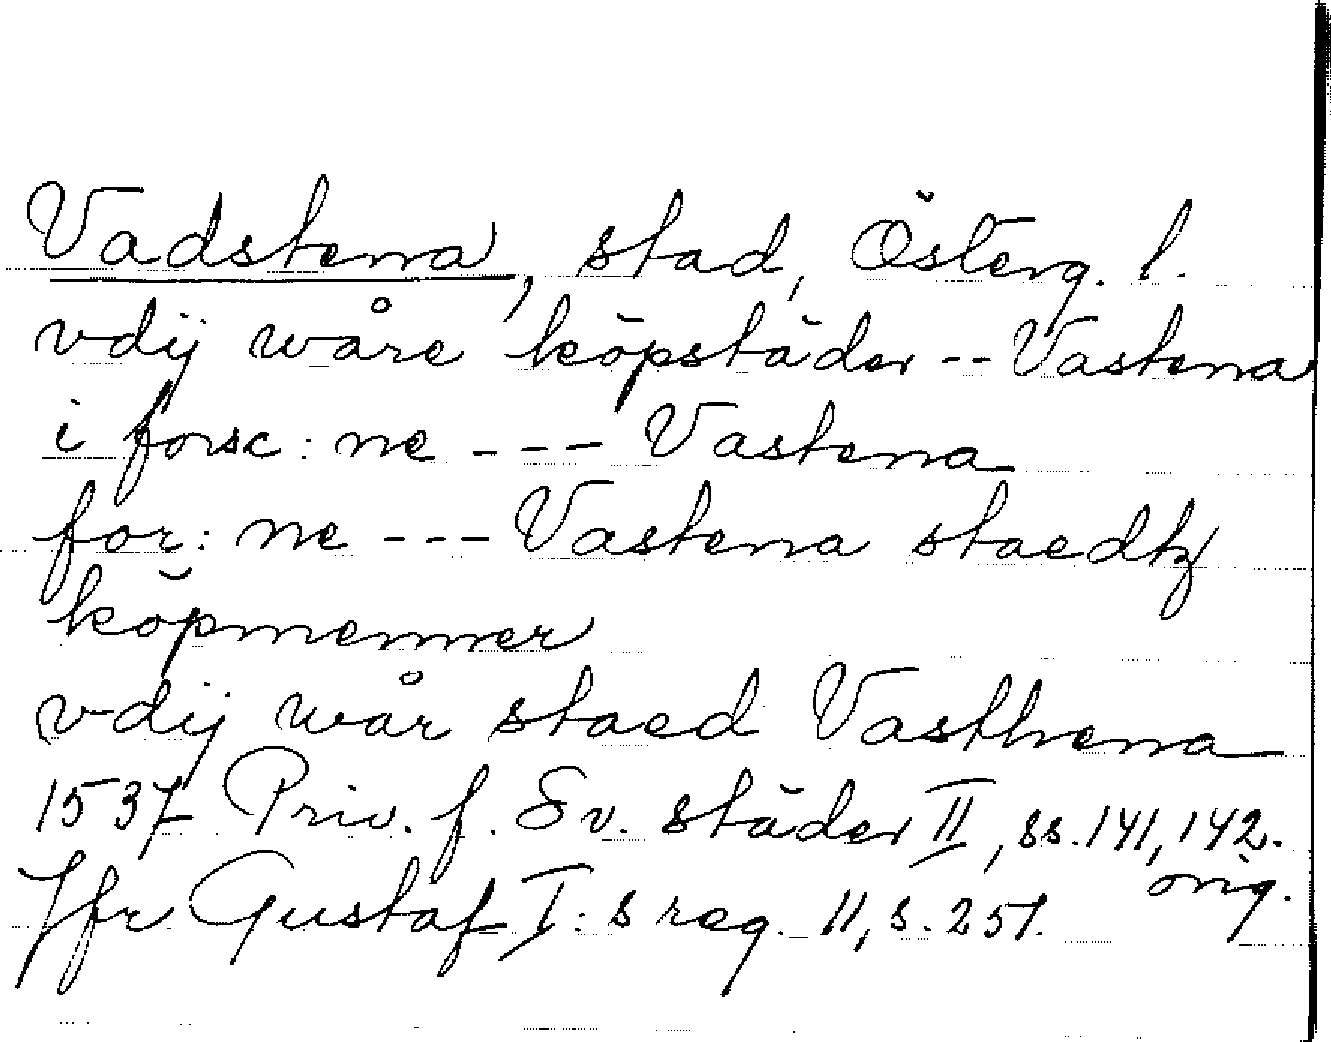 Vadstena, stad, Österg. l.
vdij wåre köpstäder -- Vastena
i forsc: ne --- Vastena
for: ne --- Vastena staedtz
köpmenner
vdij wår staed Vasthena
1537 Priv. f. Sv. städer II, ss. 141, 142.
orig.
Jfr Gustaf I: s reg. 11, s. 251.